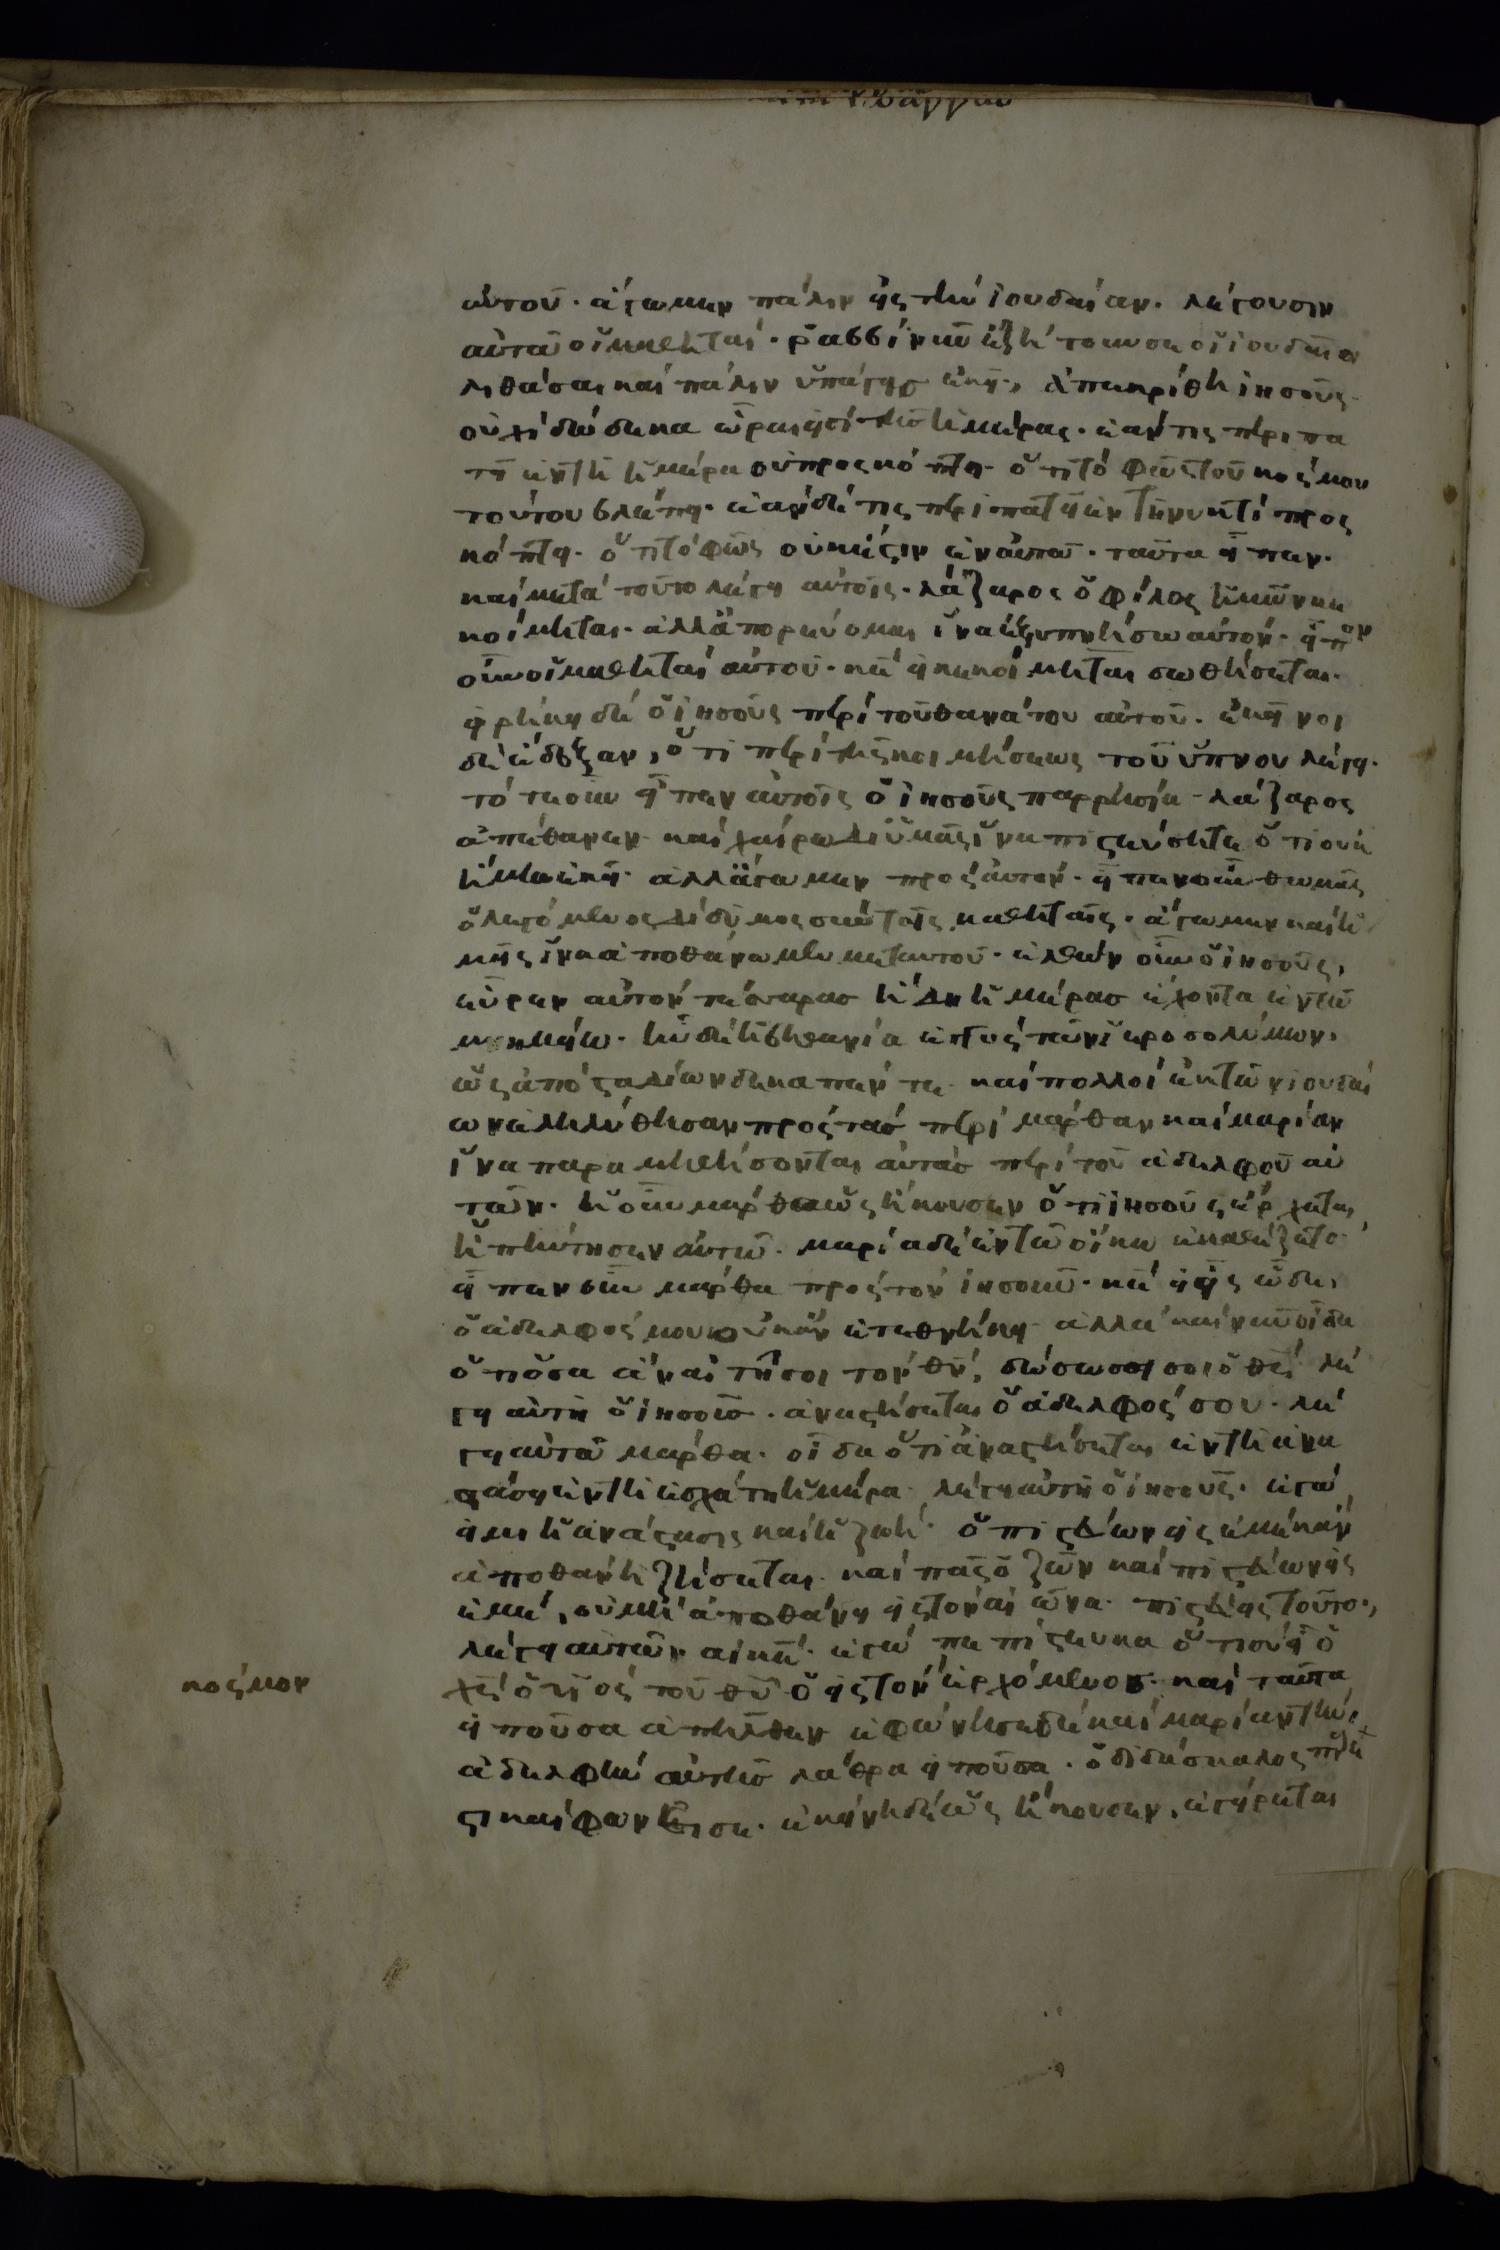 αὐτοῦ· ἄγωμεν πάλιν εἰς τὴν ἰουδαίαν· λέγουσιν
αὐτῶ οἱ μαθηταί· ῥαββί νῦν ἐζήτουν σε οἱ ἰουδαῖοι
λιθάσαι καὶ πάλιν ὑπάγεις ἐκεῖ· ἀπεκρίθη ἰησοῦς·
οὐχὶ δώδεκα ὧραι εἰσὶ τῆς ἡμέρας· ἐάν τις περιπα
τῆ ἐν τῆ ἡμέρα οὐ προσκόπτει· ὅτι τὸ φῶς τοῦ κόσμου
τούτου βλέπει· ἐὰν δέ τις περιπατεῖ ἐν τῆ νυκτί προσ
κόπτει· ὅτι τὸ φῶς οὐκ ἔστιν ἐν αὐτῶ· ταῦτα εἶπεν·
καὶ μετὰ τοῦτο λέγει αὐτοῖς· λάζαρος ὁ φίλος ἡμῶν κε
κοίμηται· ἀλλὰ πορεύομαι ἵνα ἐξυπνήσω αὐτόν· εἶπον
οὖν οἱ μαθηταί αὐτοῦ· κε εἰ κεκοίμηται σωθήσεται·
εἰρήκει δὲ ὁ ἰησοῦς περὶ τοῦ θανάτου αὐτοῦ· ἐκεῖνοι
δὲ ἔδοξαν, ὅτι περὶ τῆς κοιμήσεως τοῦ ὕπνου λέγει·
τότε οὖν εἶπεν αὐτοῖς ὁ ἰησοῦς παρρησία· λάζαρος
ἀπέθανεν· καὶ χαίρω δι ὑμᾶς ἵνα πιστεύσητε ὅτι οὐκ
ἤμην ἐκεῖ· ἀλλ ἄγωμεν πρὸς αὐτόν· εἶπεν οὖν θωμᾶς
ὁ λεγόμενος δίδυμος συμ τοῖς μαθηταῖς· ἄγωμεν καὶ ἡ
μεῖς ἵνα ἀποθάνωμεν μετ αὐτοῦ· ἐλθὼν οὖν ὁ ἰησοῦς,
εὗρεν αὐτὸν τέσσαρας ἤδη ἡμέρας ἔχοντα ἐν τῶ
μνημείω· ἦν δὲ ἡ βηθανία ἐγγὺς τῶν ἱεροσολύμων,
ὡς ἀπὸ σταδίων δεκαπέντε· καὶ πολλοὶ ἐκ τῶν ἰουδαί
ων ἐληλύθησαν πρὸς τὰς περὶ μάρθαν καὶ μαρίαν
ἵνα παραμυθήσονται αὐτὰς περὶ τοῦ ἀδελφοῦ αὐ
τῶν· ἡ οὖν μάρθα ὡς ἤκουσεν ὅτι ἰησοῦς ἔρχεται,
ὑπήντησεν αὐτῶ· μαρία δὲ ἐν τῶ οἴκω ἐκαθέζετο·
εἶπεν οὖν μάρθα πρὸς τὸν ἰησοῦν· κε εἰ ἦς ὧδε,
ὁ ἀδελφός μου οὐκ ἂν ἐτεθνήκει· ἀλλὰ καὶ νῦν οἶδα
ὅτι ὅσα ἂν αἰτήσοι τὸν θν, δώσει σοι ὁ θς· λέ
γει αὐτῆ ὁ ἰησοῦς· ἀναστήσεται ὁ ἀδελφός σου· λέ
γει αὐτῶ μάρθα· οἶδα ὅτι ἀναστήσεται ἐν τῆ ἀνα
στάσει ἐν τῆ ἐσχάτη ἡμέρα· λέγει αὐτῆ ὁ ἰησοῦς· ἐγώ
εἰμι ἡ ἀνάστασις καὶ ἡ ζωή· ὁ πιστεύων εἰς ἐμὲ κἂν
ἀποθάνη ζήσεται· καὶ πᾶς ὁ ζῶν καὶ πιστεύων εἰς
ἐμέ, οὐ μὴ ἀποθάνη εἰς τὸν αἰῶνα· πιστεύεις τοῦτο·,
λέγει αὐτῶ· ναὶ κε· ἐγὼ πεπίστευκα ὅτι σὺ εἶ ὁ
χς ὁ υἱός τοῦ θυ ὁ εἰς τὸν ἐρχόμενος· καὶ ταῦτα
κόσμον
εἰποῦσα ἀπῆλθεν ἐφώνησε δὲ καὶ μαρίαν τὴν
ἀδελφὴν αὐτῆς λάθρα εἰποῦσα· ὁ διδάσκαλος πάρε
στι καὶ φωνεῖ σε· ἐκείνη δὲ ὡς ἤκουσεν, ἐγείρεται